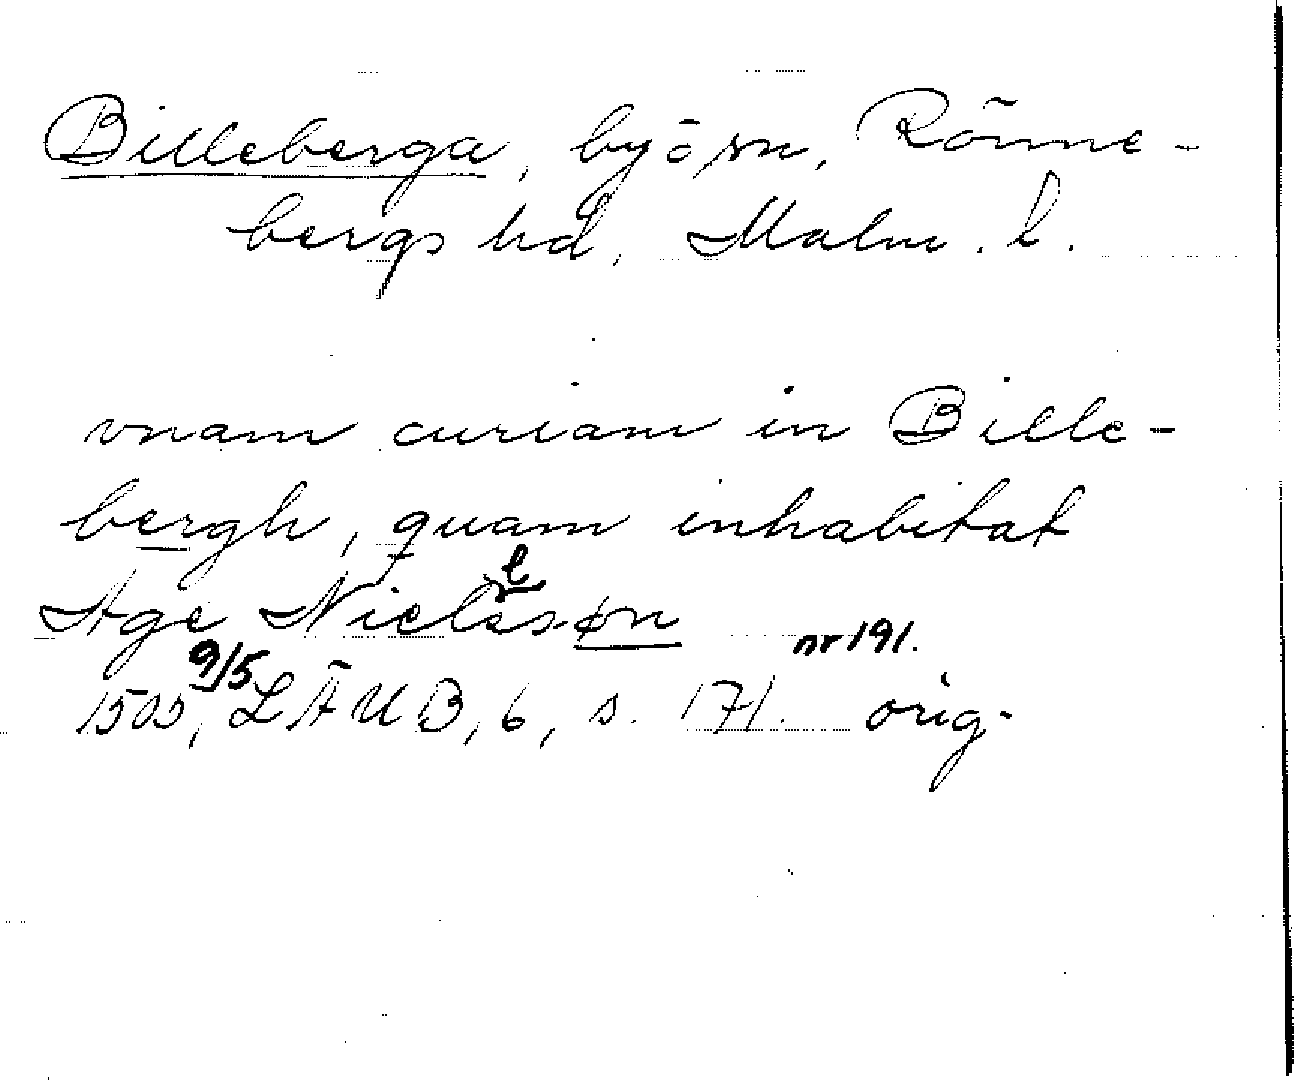 Billeberga, by ö sn, Rönne-
bergs hd, Malm. l.
vnam curiam in Bille-
bergh, quam inhabitat
Age Nielssøn
1505 9/5, LÄUB, 6, s. 171. nr 191. orig.